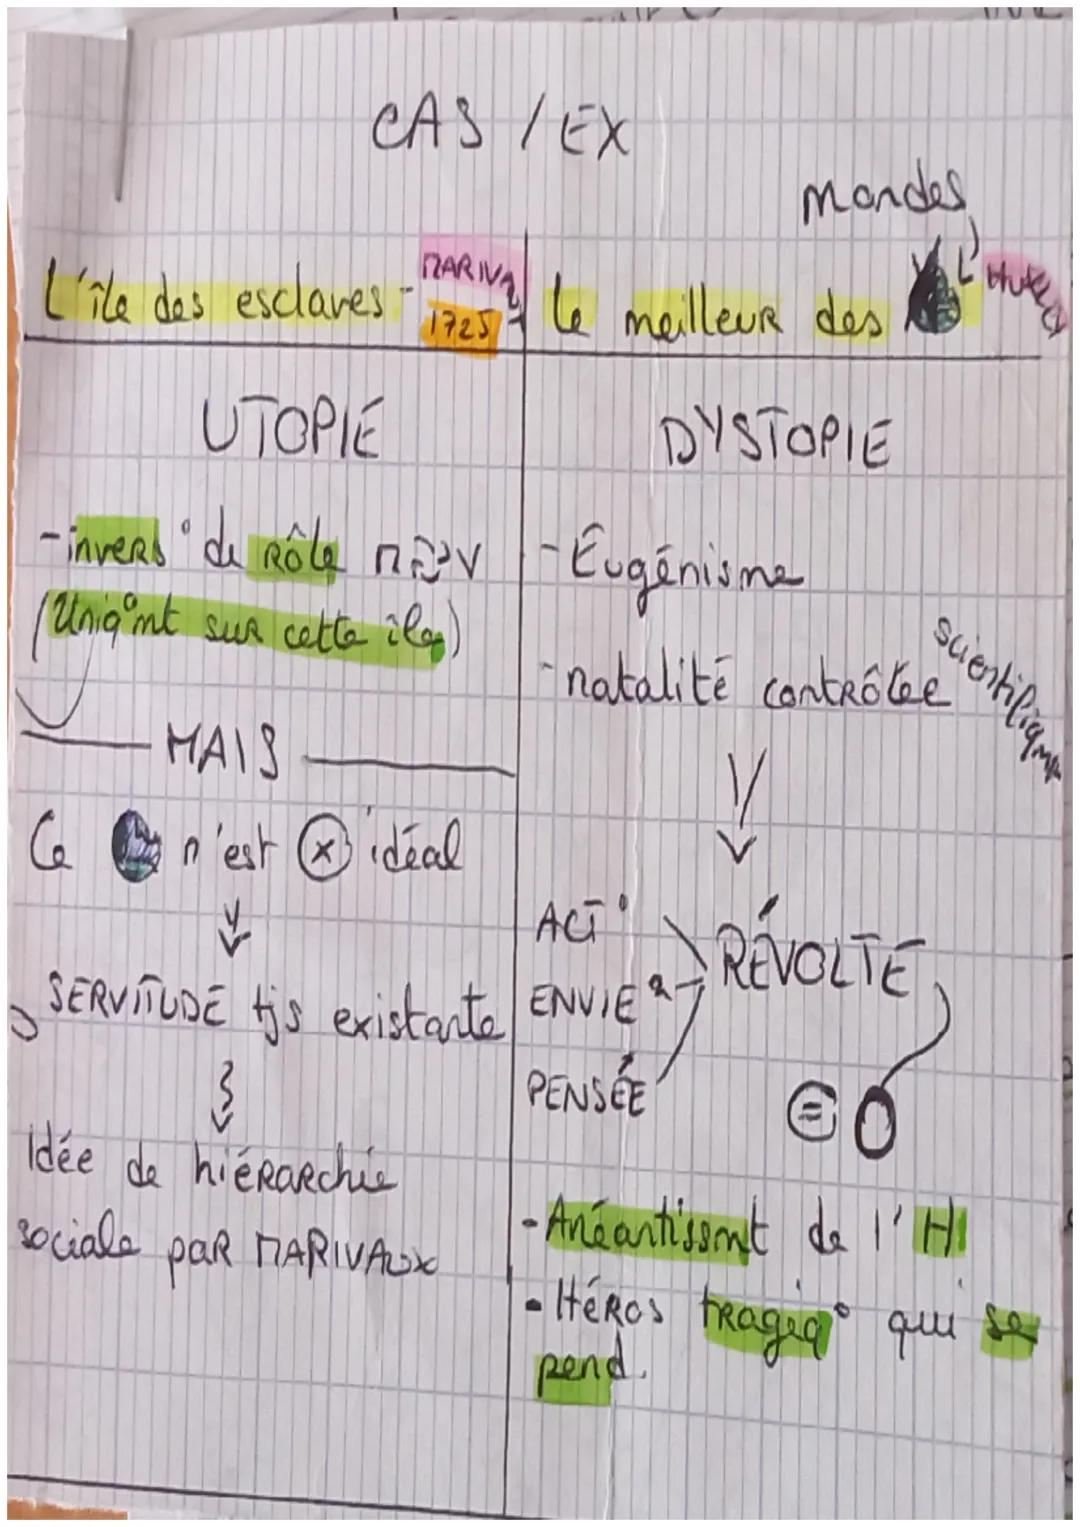 CAS / EX
L'île des esclaves - MARIVAUX 1725
Le meilleur des mondes Huxley
UTOPIE
- invers° de rôle M V
(Uniq°mt sur cette île)
MAIS
Ce n'est idéal
SERVITUDE tjs existante
Idée de hiérarchie
sociale par MARIVAUX
DYSTOPIE
- Eugénisme
- natalité contrôlée scientifiqmt
ACT°
ENVIE
PENSÉE
RÉVOLTE
= 0
- Anéantissmt de l'H
- Héros tragiq° qui se
pend.